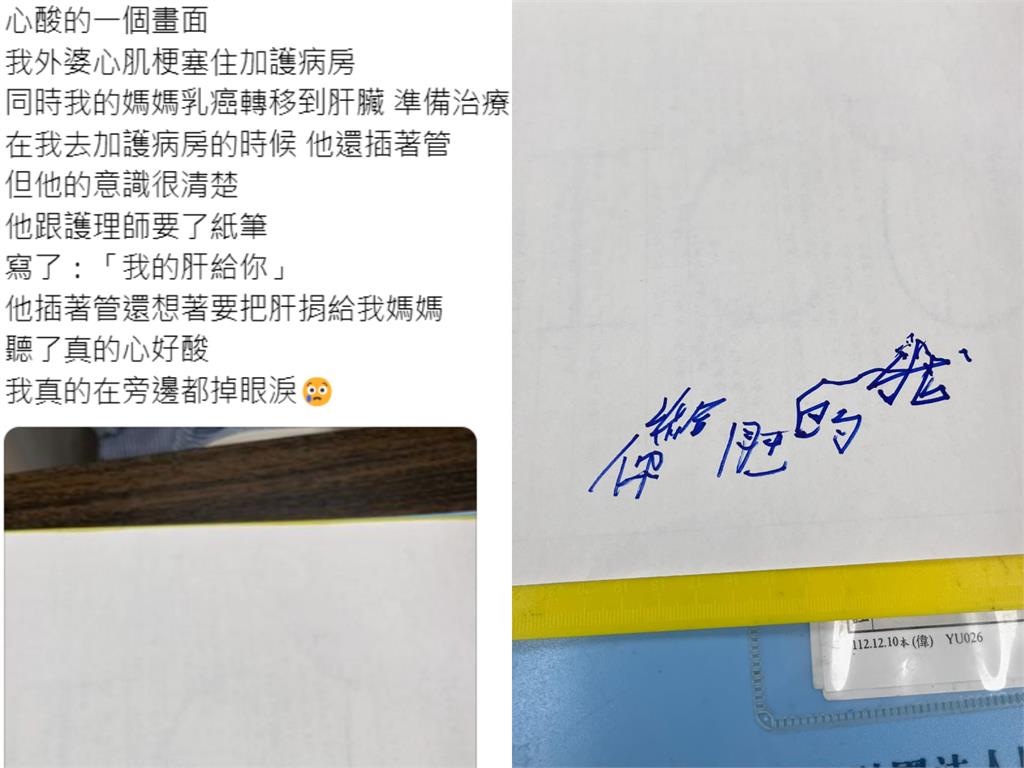 心酸的一個畫面
我外婆心肌梗塞住加護病房
同時我的媽媽乳癌轉移到肝臟 準備治療
在我去加護病房的時候 他還插著管
但他的意識很清楚
他跟護理師要了紙筆
寫了：「我的肝給你」
他插著管還想著要把肝捐給我媽媽
聽了真的心好酸
我真的在旁邊都掉眼淚😢
我的肝給你
112.12.10本(偉) YU026
團法人